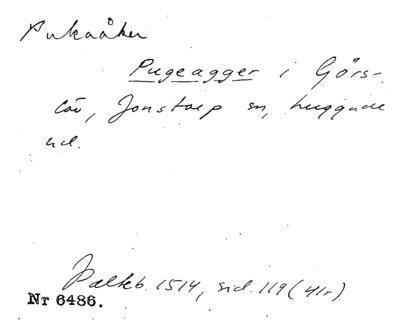 Pukaåker
Pugeagger i Görs-
löv, Jonstorp sn, Luggude
hd.
Palteb. 1514, sid. 119 (41r).
Nr 6486.